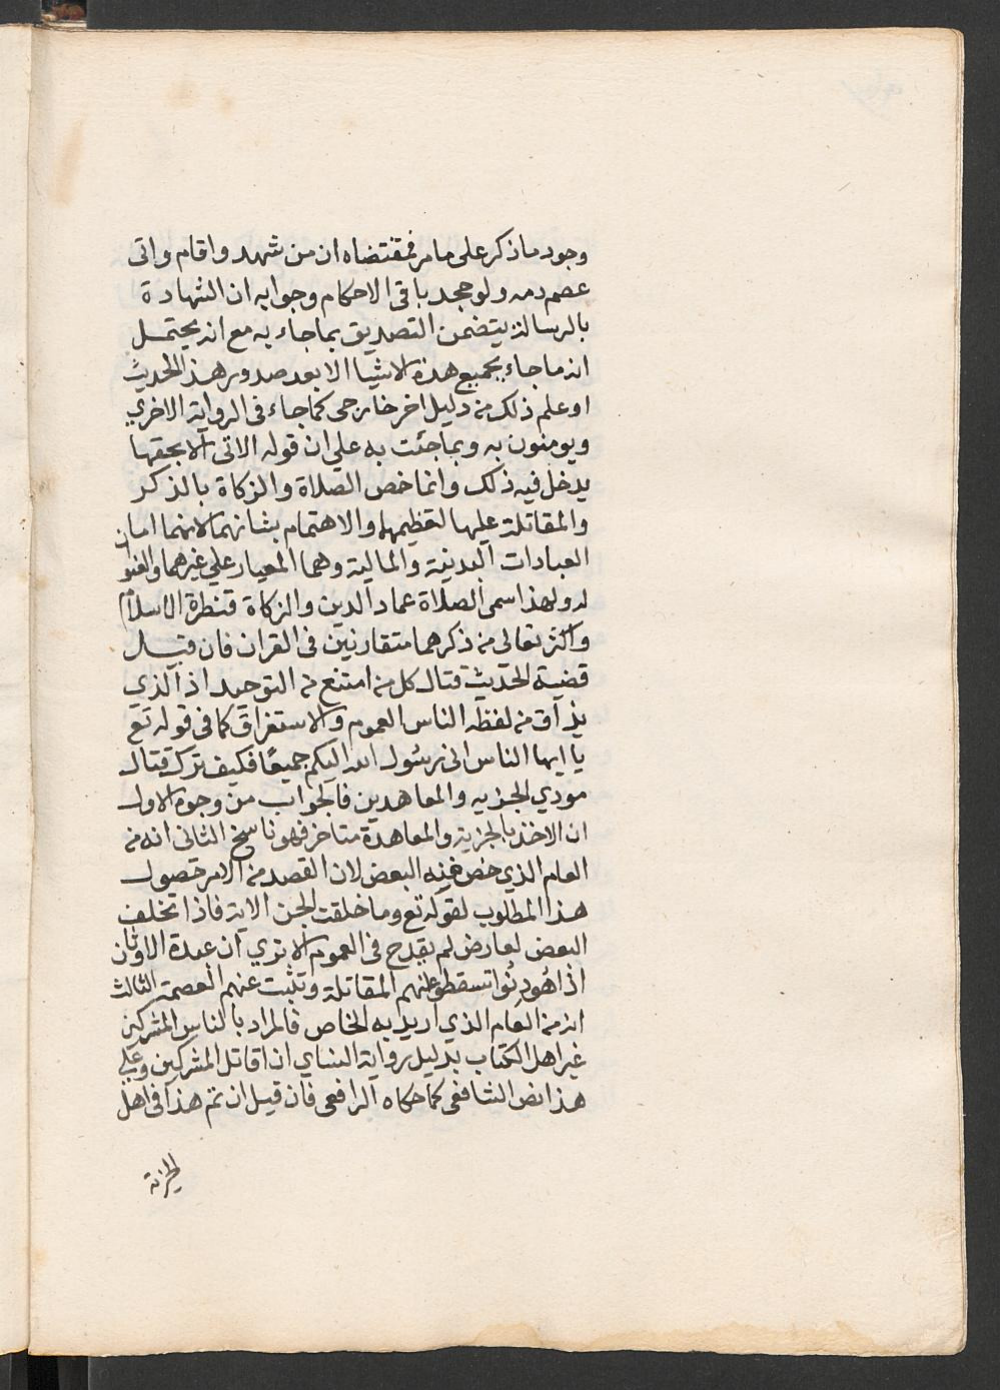 وجود ما ذكر على ما مر فمقتضاه ان من شهد واقام واتى
عصم دمه ولو جحد باقى الاحكام وجوابه ان الشهادة
بالرسالة يتضمن التصديق بما جاء به مع انه يحتمل
انه ما جاء بجميع هذه الاشيا الا بعد صدور هذ الحديث
او علم ذلك من دليل اخر خارجى كما جاء فى الرواية الاخري
ويومنون به وبما جئت به علي ان قوله الاتى الا بحقها
يدخل فيه ذلك وانما خص الصلاة والزكاة بالذكر
والمقاتلة عليها لتعظيمهما والاهتمام بشانهما لانهما امان
العبادات البدنية والمالية وهما المعيار علي غيرهما والعنوان
له ولهذا سمى الصلاة عماد الدين والزكاة قنطرة الاسلام
واكثر تعالى من ذكرهما متقارنين فى القران فان قيل
قضية الحديث قتال كل من امتنع من التوحيد اذ الذي
يذاق من لفظه الناس العموم والاستغراق كما فى قوله تع
يا ايها الناس انى رسول الله اليكم جميعًا فكيف ترك قتال
مودي الجزيه والمعاهدين فالجواب من وجوه الاول
ان الاخذ بالجزية والمعاهدة متاخر فهو ناسخ الثانى انه من
العام الذي خص منه البعض لان القصد من الامر حصول
هذا المطلوب لقوله تع وما خلقت الجن الاية فاذا تخلف
البعض لعارض لم يقدح فى العموم الا تري ان عبدة الاوثان
اذا هُودِنُوا تسقط عنهم المقاتلة وتثبت عنهم العصمة الثالث
انه من العام الذي اريد به الخاص فالمراد بالناس المشركين
غير اهل الكتاب بدليل رواية النساي ان اقاتل المشركين وعلي
هذا نص الشافعى كما حكاه الرافعى فان قيل ان تم هذا فى اهل
الجزية